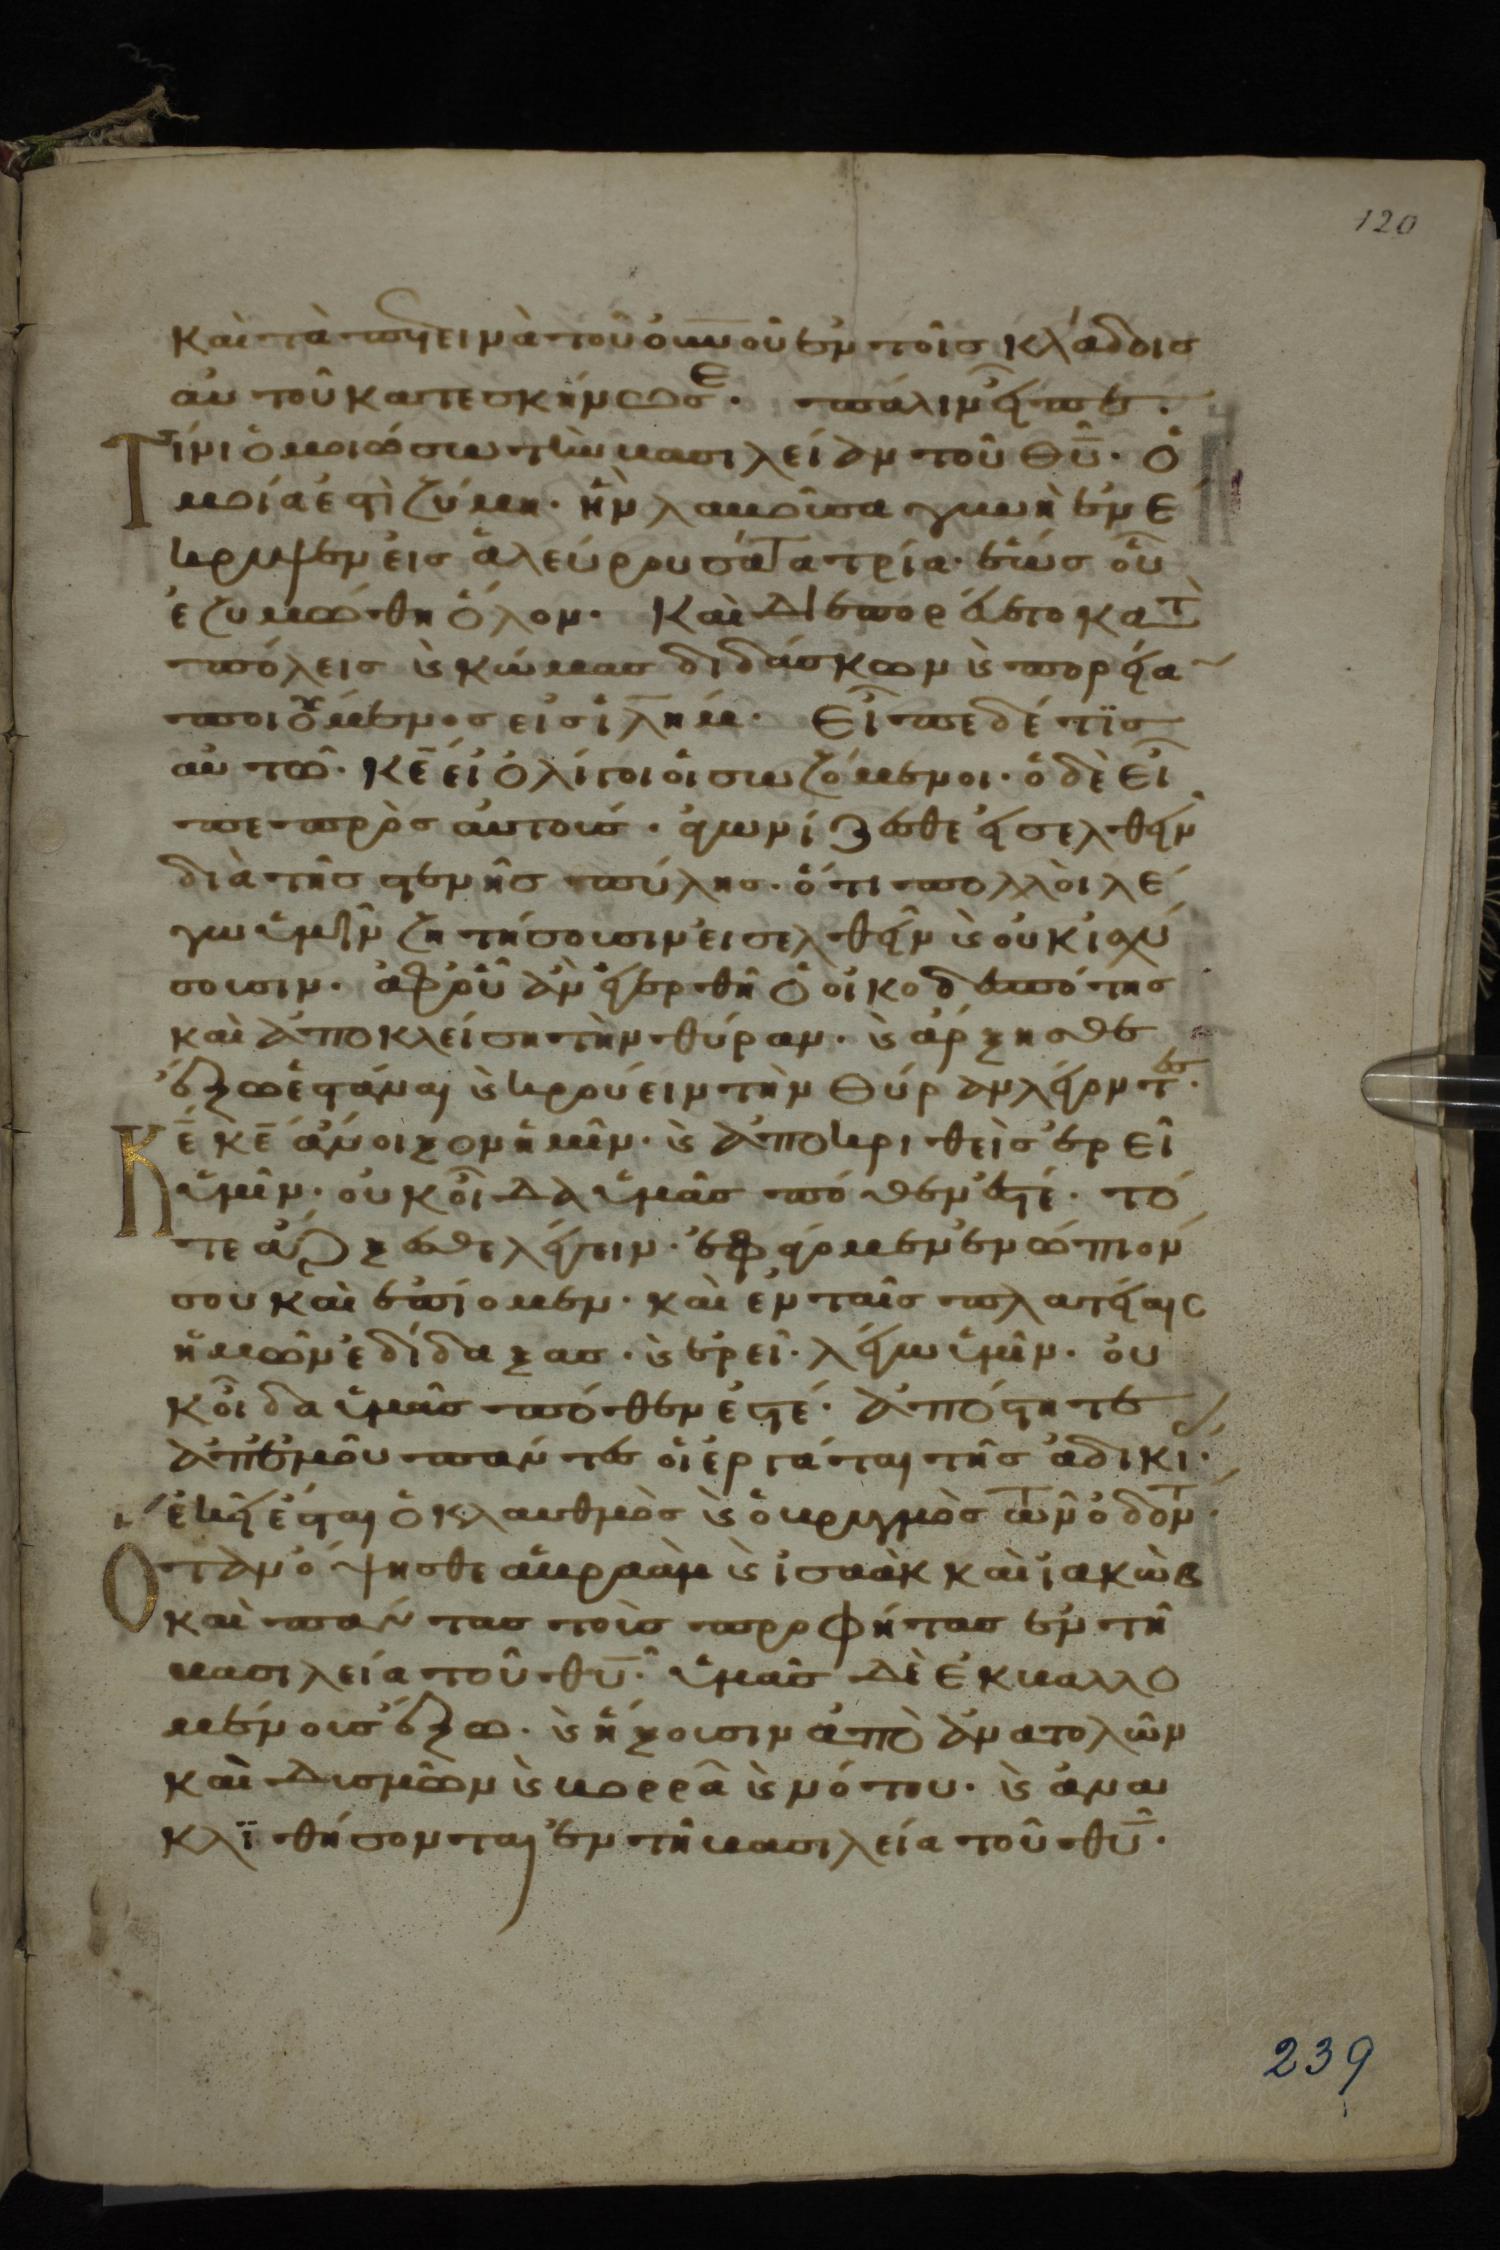 120
καὶ τὰ πετεινὰ τοῦ οὐνοῦ ἐν τοῖς κλάδοις
αὐτοῦ κατεσκήνωσε. πάλιν εἶπε.
Τίνι ὁμοιώσω τὴν βασιλείαν τοῦ θῦ. ὁ
μοία ἐστὶ ζύμη. ἣν λαβοῦσα γυνὴ ἐνέ
κρυψεν εἰς ἀλεύρου σάτα τρία. ἕως οὗ
ἐζυμώθη ὅλον. Καὶ διεπορεύετο κατὰ
πόλεις κ κώμας διδάσκων κ πορείαν
ποιούμενος εἰς ἱλημ. Εἶπε δέ τϊς
αὐτῶ. κε εἰ ὀλίγοι οἱ σωζόμενοι. ὁ δὲ εἶ
πε πρὸς αὐτούς. ἀγωνίζεσθε εἰσελθεῖν
διὰ τῆς στενῆς πύλης. ὅτι πολλοὶ λέ
γω ὑμῖν ζητήσουσιν εἰσελθεῖν κ οὐκ ἰσχύ
σουσιν. ἀφ οὗ ἂν ἐγερθῆ ὁ οἰκοδεσπότης
καὶ ἀποκλείση τὴν θύραν. κ ἄρχησθε
ἔξω ἑστάναι κ κρούειν τὴν θύραν λέγοντες.
Κε κε ἄνοιξον ἡμῖν. κ ἀποκριθεὶς ἐρεῖ
ὑμῖν. οὐκ οἶδα ὑμᾶς πόθεν ἐστέ. τό
τε ἄρξεσθε λέγειν. ἐφάγομεν ἐνώπιόν
σου καὶ ἐπίομεν. καὶ ἐν ταῖς πλατείαις
ἡμῶν ἐδίδαξας. κ ἐρεῖ. λέγω ὑμῖν. οὐ
κ οἶδα ὑμᾶς πόθεν ἐστέ. ἀπόστητε
ἀπ ἐμοῦ πάντες οἱ ἐργάται τῆς ἀδικί.
ἐκεῖ ἔσται ὁ κλαυθμὸς κ ὁ βρυγμὸς τῶν ὀδόντ.
Ὅταν ὄψησθε ἀβραὰμ κ ἰσαὰκ καὶ ἰακὼβ
καὶ πάντας τοὺς προφήτας ἐν τῆ
βασιλεία τοῦ θῦ. ὑμᾶς δὲ ἐκβαλλο
μένους ἔξω. κ ἥξουσιν ἀπὸ ἀνατολῶν
καὶ δυσμῶν κ βορρᾶ κ νότου. κ ἀνα
κλϊθήσονται ἐν τῆ βασιλεία τοῦ θῦ.
239